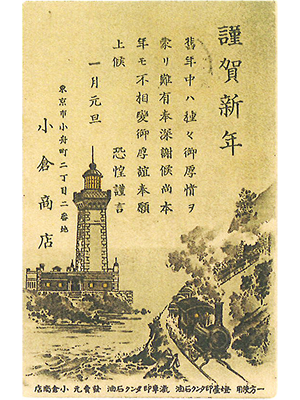 謹賀新年
舊年中ハ種々御厚情ヲ
蒙リ難有奉深謝候尚本
年モ不相變御厚誼奉願
上候　恐惶謹言
一月元旦
東京市小舟町二丁目二番地
小倉商店
一方専用 燈臺印タンク石油 漁車印タンク石油 發賣元 小倉商店